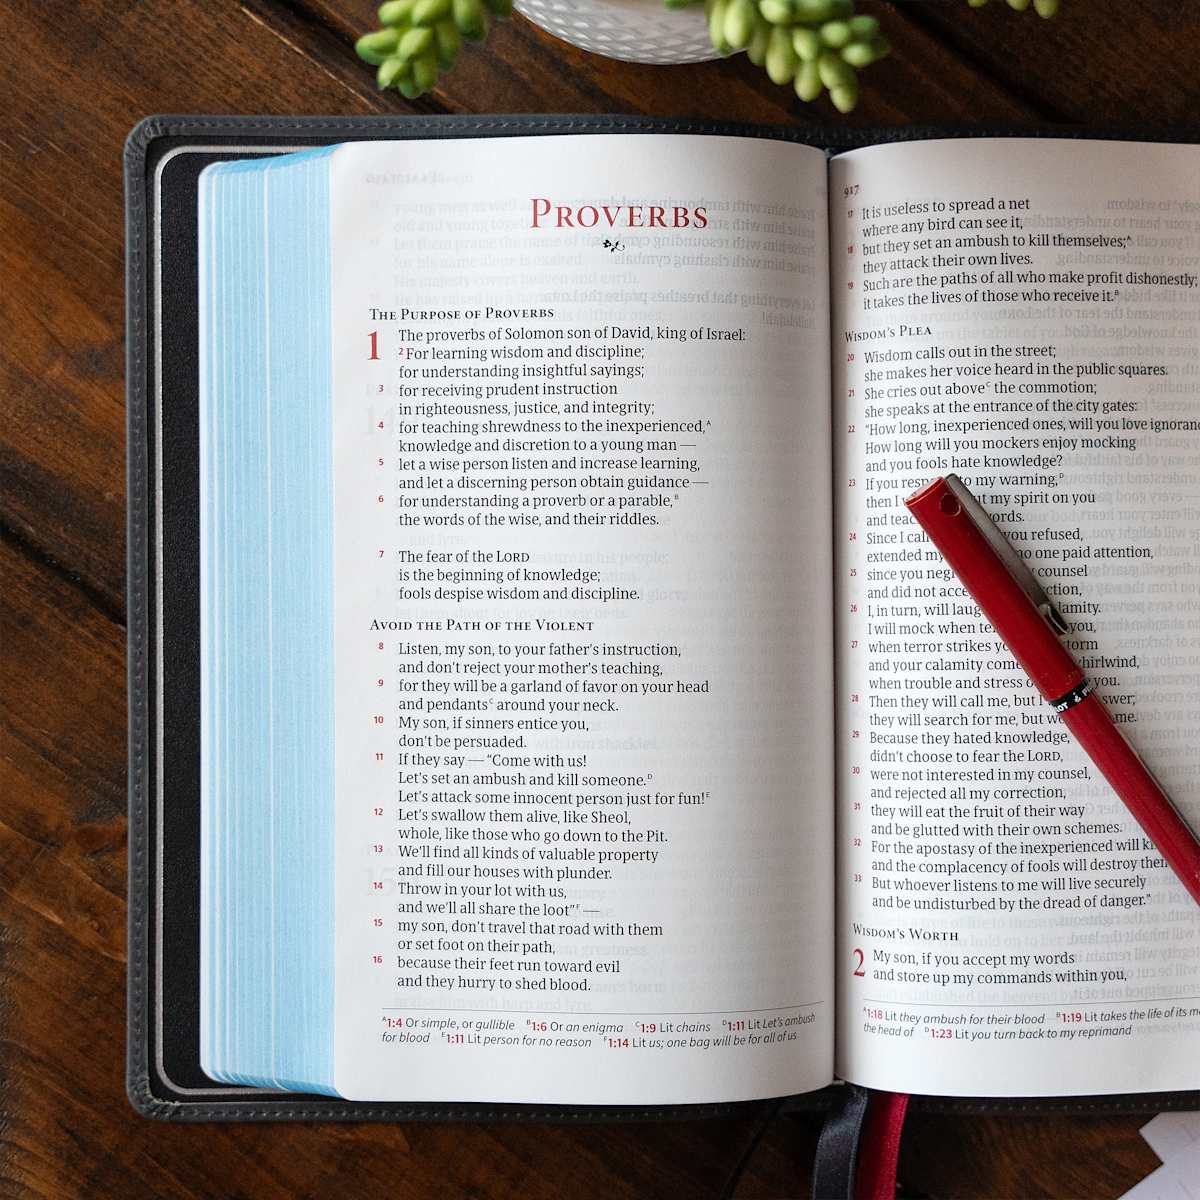 PROVERBS
THE PURPOSE OF PROVERBS
1 The proverbs of Solomon son of David, king of Israel:
2 For learning wisdom and discipline;
for understanding insightful sayings;
3 for receiving prudent instruction
in righteousness, justice, and integrity;
4 for teaching shrewdness to the inexperienced,A
knowledge and discretion to a young man —
5 let a wise person listen and increase learning,
and let a discerning person obtain guidance —
6 for understanding a proverb or a parable,B
the words of the wise, and their riddles.
7 The fear of the LORD
is the beginning of knowledge;
fools despise wisdom and discipline.
AVOID THE PATH OF THE VIOLENT
8 Listen, my son, to your father's instruction,
and don't reject your mother's teaching,
9 for they will be a garland of favor on your head
and pendantsC around your neck.
10 My son, if sinners entice you,
don't be persuaded.
11 If they say — "Come with us!
Let's set an ambush and kill someone.D
Let's attack some innocent person just for fun!E
12 Let's swallow them alive, like Sheol,
whole, like those who go down to the Pit.
13 We'll find all kinds of valuable property
and fill our houses with plunder.
14 Throw in your lot with us,
and we'll all share the loot"F —
15 my son, don't travel that road with them
or set foot on their path,
16 because their feet run toward evil
and they hurry to shed blood.
A1:4 Or simple, or gullible B1:6 Or an enigma C1:9 Lit chains D1:11 Lit Let's ambush
for blood E1:11 Lit person for no reason F1:14 Lit us; one bag will be for all of us
917
17 It is useless to spread a net
where any bird can see it,
18 but they set an ambush to kill themselves;A
they attack their own lives.
19 Such are the paths of all who make profit dishonestly;
it takes the lives of those who receive it.B
WISDOM'S PLEA
20 Wisdom calls out in the street;
she makes her voice heard in the public squares.
21 She cries out aboveC the commotion;
she speaks at the entrance of the city gates:
22 "How long, inexperienced ones, will you love ignoranc
How long will you mockers enjoy mocking
and you fools hate knowledge?
23 If you resp to my warning,D
then I w ut my spirit on you
and teac ords.
24 Since I call you refused,
extended my no one paid attention,
25 since you negl counsel
and did not acce ction,
26 I, in turn, will laug lamity.
I will mock when te you,
27 when terror strikes yo torm
and your calamity come hirlwind,
when trouble and stress o you.
28 Then they will call me, but I swer;
they will search for me, but wo me.
29 Because they hated knowledge,
didn't choose to fear the LORD,
30 were not interested in my counsel,
and rejected all my correction,
31 they will eat the fruit of their way
and be glutted with their own schemes.
32 For the apostasy of the inexperienced will ki
and the complacency of fools will destroy them
33 But whoever listens to me will live securely
and be undisturbed by the dread of danger."
WISDOM'S WORTH
2 My son, if you accept my words
and store up my commands within you,
A1:18 Lit they ambush for their blood B1:19 Lit takes the life of its m
the head of D1:23 Lit you turn back to my reprimand